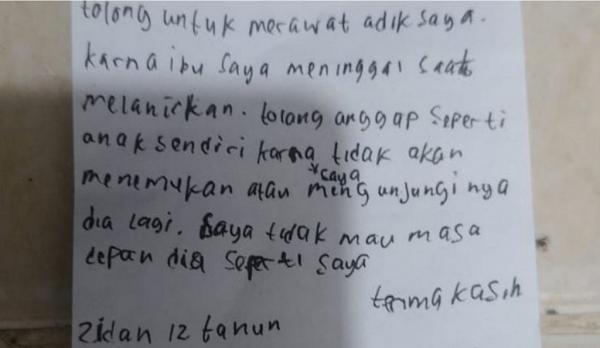 tolong untuk merawat adik saya.
karna ibu saya meninggal saat
melanirkan. tolong anggap seperti
anak sendiri karna tidak akan
saya
menemukan atau mengunjungi nya
dia lagi. saya tidak mau masa
depan dia seperti saya
terma kasih
Zidan 12 tanun